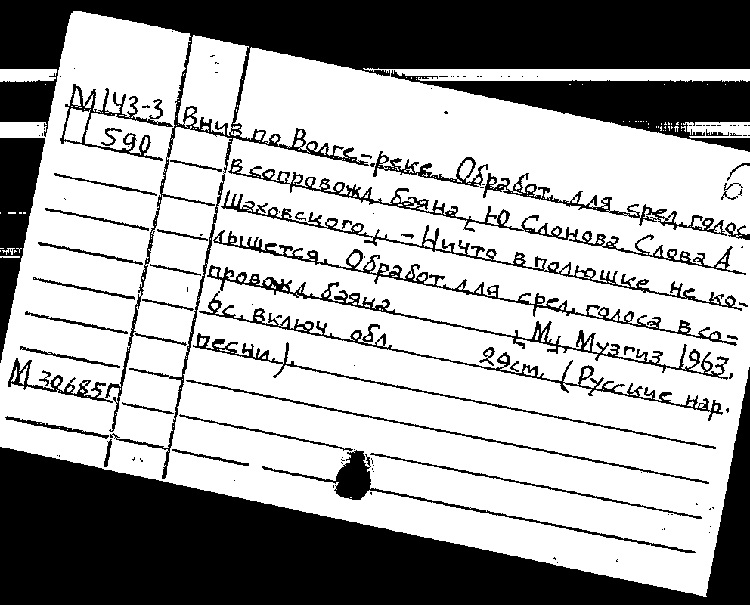 6
М143-3 Вниз по Волге-реке. Обработ. для сред. голоса
590
в сопровожд. баяна [Ю Слонова Слова А
Шаховского]. – Ничто в полюшке не ко-
лышется. Обработ. для сред. голоса в со-
провожд. баяна. [М], Музгиз, 1963.
6с. включ. обл. 29см. (Русские нар.
песни.).
М 30685г.